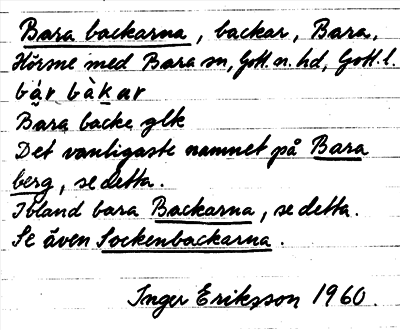 Bara backarna, backar, Bara,
Hörsne med Bara sn, Gotl. n. hd, Gotl. l.
bár bàkar
Bara backe glk
Det vanligaste namnet på Bara
berg, se detta.
Ibland bara Backarna, se detta.
Se även Sockenbackarna.
Inger Eriksson 1960.